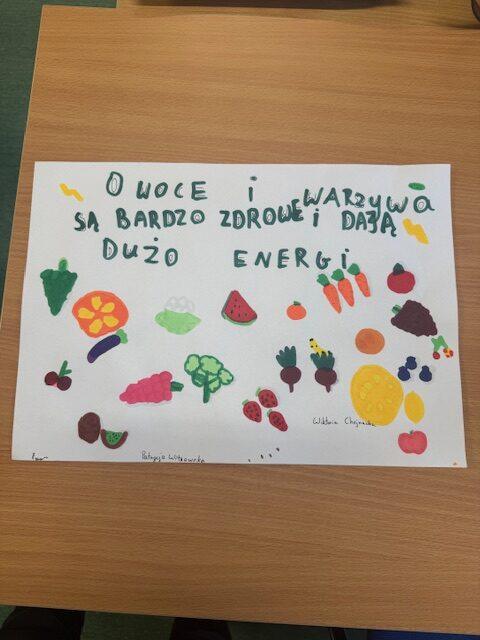 OWOCE i WARZYWA
SĄ BARDZO ZDROWE i DAJĄ
DUŻO ENERGI
Wiktoria Chojnacka
Patrycja Witkowska